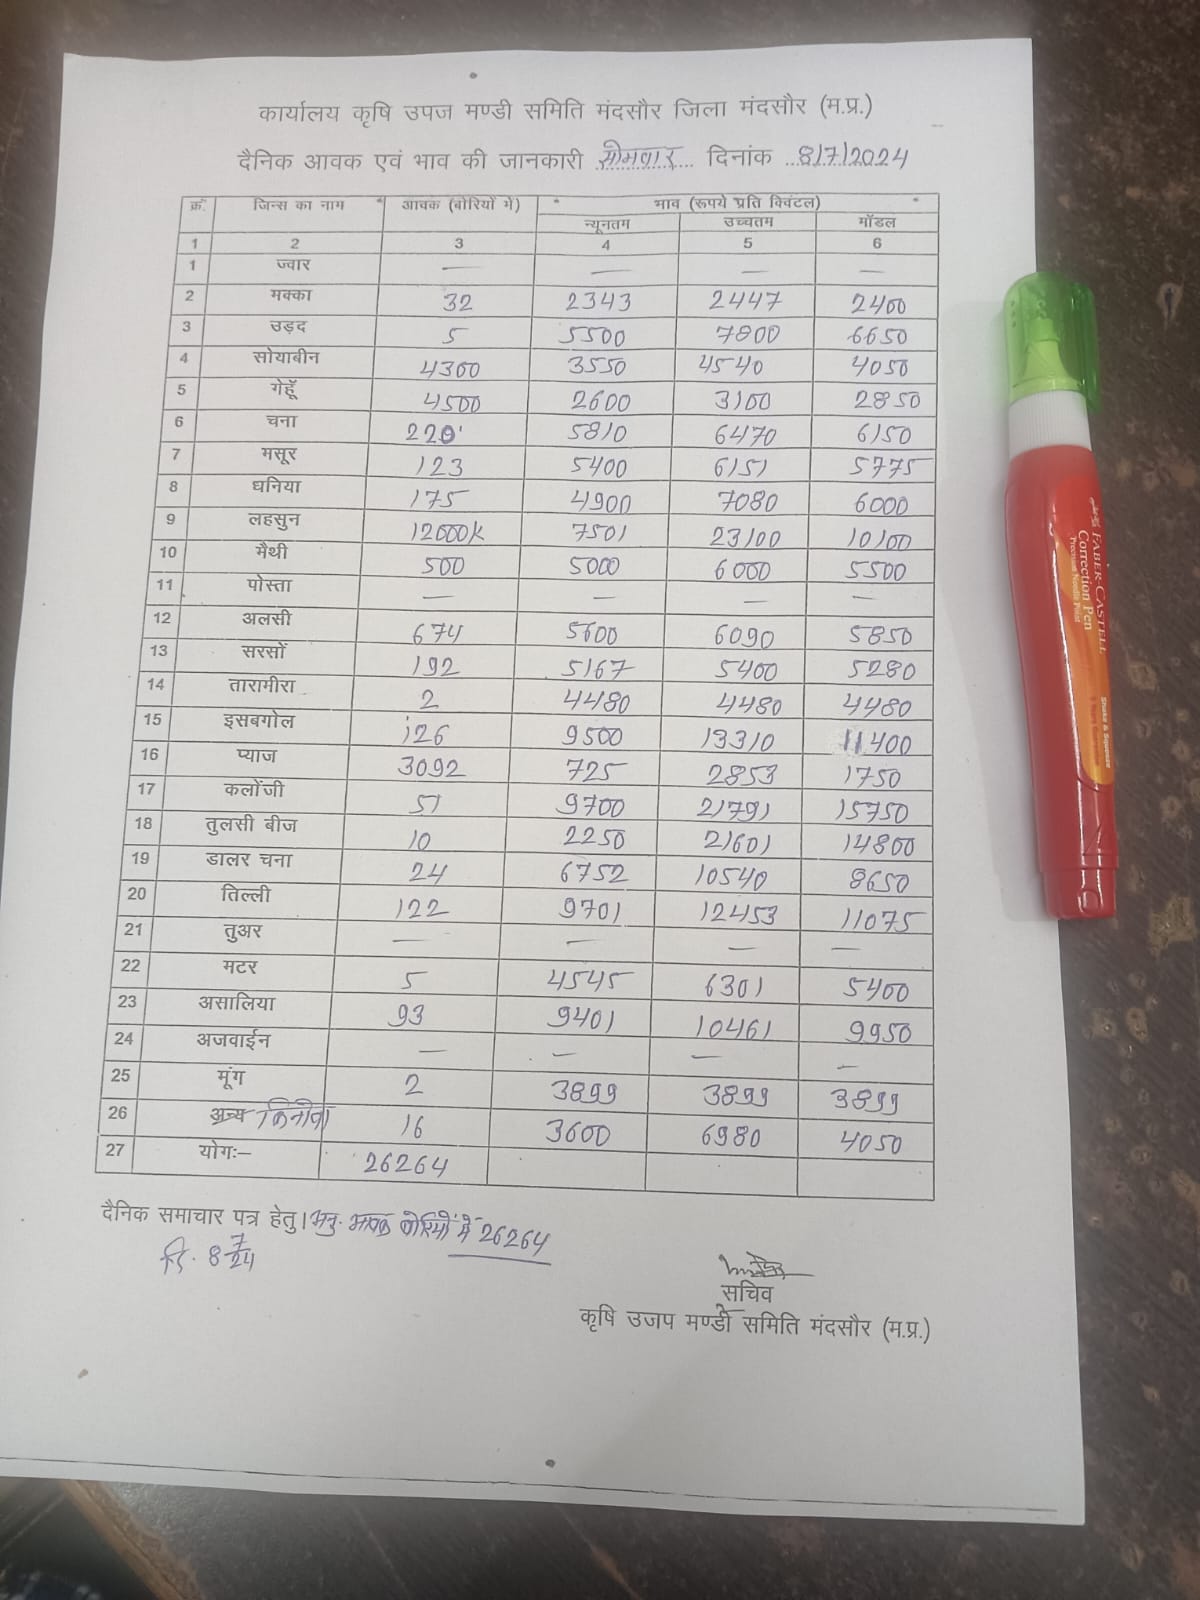 कार्यालय कृषि उपज मण्डी समिति मंदसौर जिला मंदसौर (म.प्र.)
दैनिक आवक एवं भाव की जानकारी सोमवार दिनांक 8/7/2024
क्र. जिन्स का नाम आवक (बोरियों में) भाव (रूपये प्रति क्विंटल)
न्यूनतम उच्चतम मॉडल
1 2 3 4 5 6
1 ज्वार — — — —
2 मक्का 32 2343 2447 2400
3 उड़द 5 5500 7800 6650
4 सोयाबीन 4300 3550 4540 4050
5 गेहूँ 4500 2600 3100 2850
6 चना 220 5810 6470 6150
7 मसूर 123 5400 6151 5775
8 धनिया 175 4900 7080 6000
9 लहसुन 12000K 7501 23100 10100
10 मैथी 500 5000 6000 5500
11 पोस्ता — — — —
12 अलसी 674 5600 6090 5850
13 सरसों 192 5167 5400 5280
14 तारामीरा 2 4480 4480 4480
15 इसबगोल 126 9500 13310 11400
16 प्याज 3092 725 2853 1750
17 कलोंजी 51 9700 21791 15750
18 तुलसी बीज 10 2250 21601 14800
19 डालर चना 24 6752 10540 8650
20 तिल्ली 122 9701 12453 11075
21 तुअर — — — —
22 मटर 5 4545 6301 5400
23 असालिया 93 9401 10461 9950
24 अजवाईन — — — —
25 मूंग 2 3899 3899 3899
26 अन्य किनोवा 16 3600 6980 4050
27 योगः– 26264
दैनिक समाचार पत्र हेतु। आवक बोरियों में 26264
दि. 8 7/24
सचिव
कृषि उजप मण्डी समिति मंदसौर (म.प्र.)
FABER-CASTELL
Correction Pen
Precision Needle Point
Shake & Squeeze